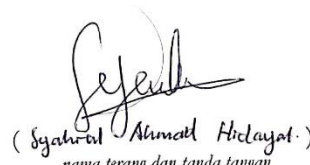 ( Syahrul Ahmad Hidayat. )
nama terang dan tanda tangan